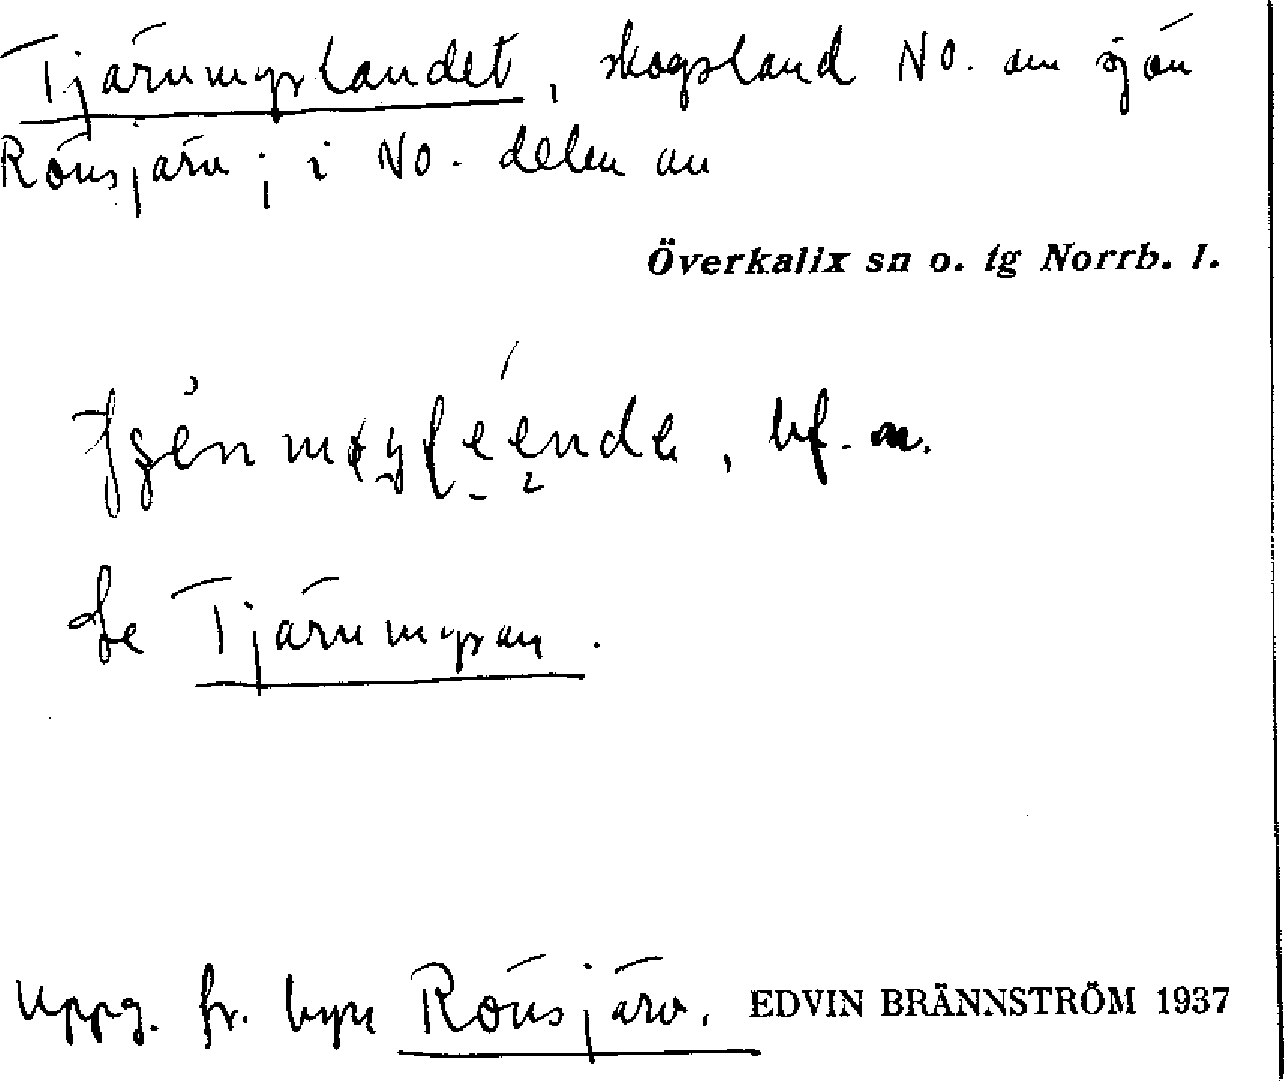 Tjärnmyrlandet, skogsland NO. om sjön
Rönsjärv; i NO. delen av
Överkalix sn o. tg Norrb. l.
, bf. m.
Se Tjärnmyran.
Uppg. fr. byn Rönsjärv. EDVIN BRÄNNSTRÖM 1937